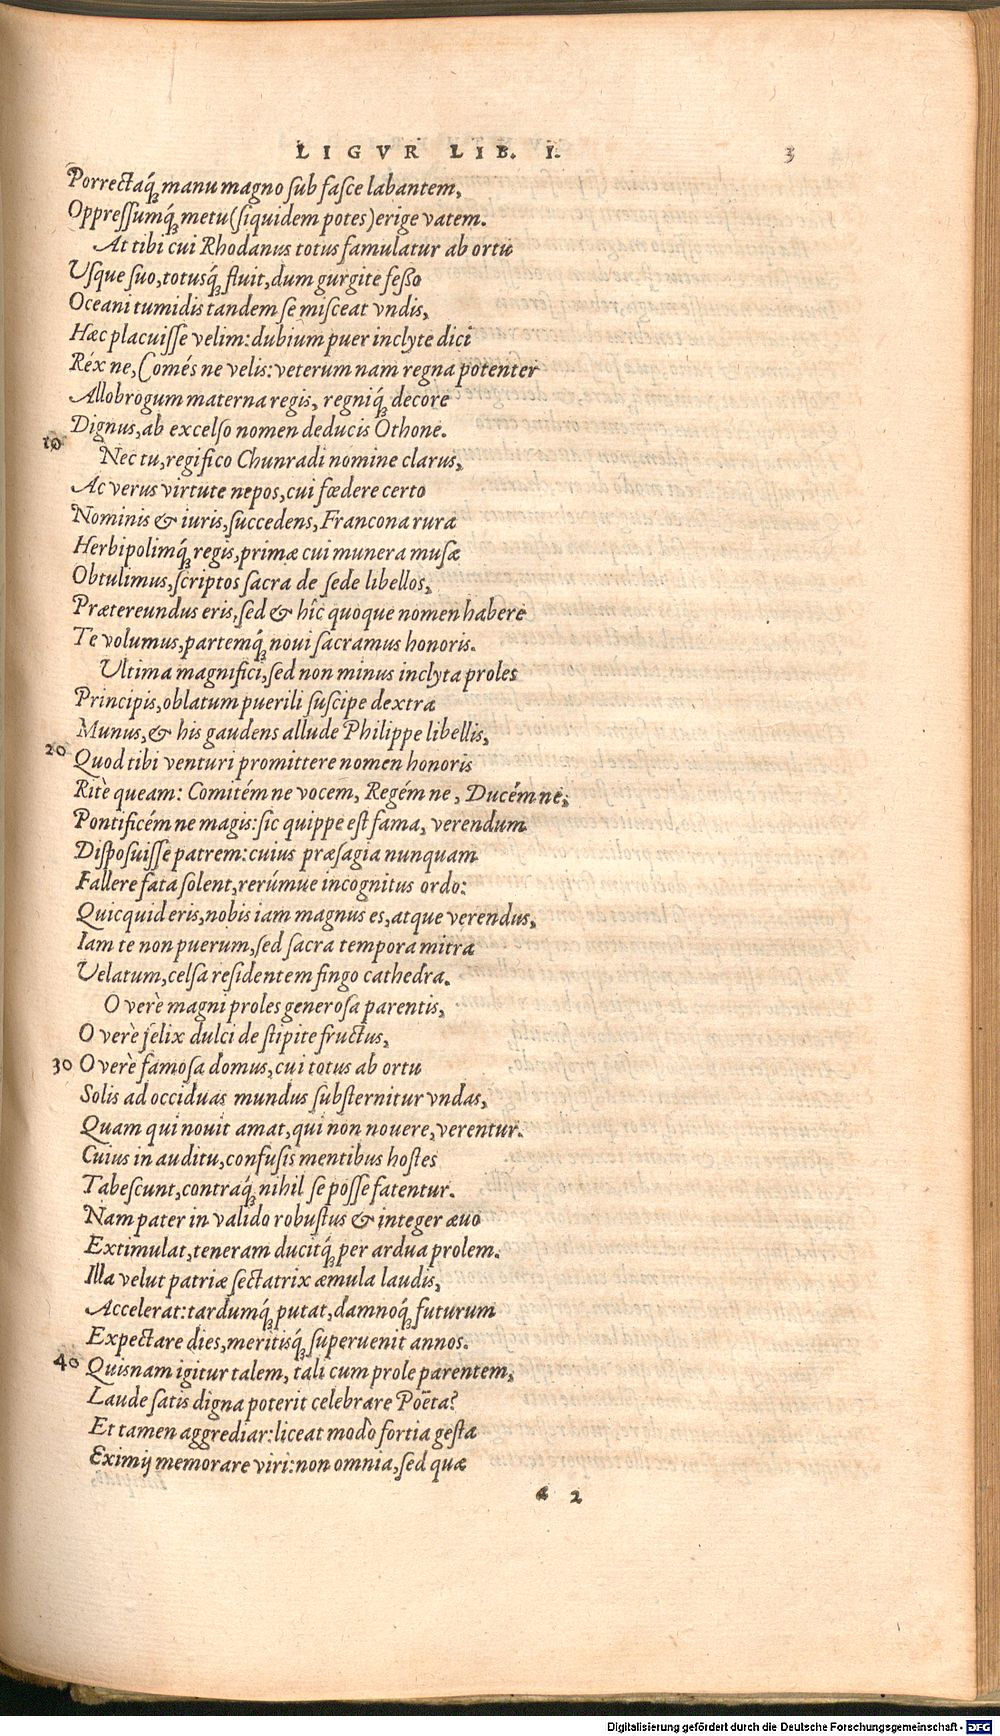 LIGVR LIB. I. 3
Porrectaq́; manu magno sub fasce labantem,
Oppressumq́; metu (siquidem potes) erige vatem.
At tibi cui Rhodanus totus famulatur ab ortu
Vsque suo, totusq́; fluit, dum gurgite fesso
Oceani tumidis tandem se misceat vndis,
Hæc placuisse velim: dubium puer inclyte dici
Réx ne, Comés ne velis: veterum nam regna potenter
Allobrogum materna regis, regniq́; decore
Dignus, ab excelso nomen deducis Othone.
10 Nec tu, regifico Chunradi nomine clarus,
Ac verus virtute nepos, cui fœdere certo
Nominis & iuris, succedens, Francona rura
Herbipolimq́; regis, primæ cui munera musæ
Obtulimus, scriptos sacra de sede libellos,
Prætereundus eris, sed & hîc quoque nomen habere
Te volumus, partemq́; noui sacramus honoris.
Ultima magnifici, sed non minus inclyta proles
Principis, oblatum puerili suscipe dextra
Munus, & his gaudens allude Philippe libellis,
20 Quod tibi venturi promittere nomen honoris
Ritè queam: Comitém ne vocem, Regém ne, Ducém ne;
Pontificém ne magis: sic quippe est fama, verendum
Disposuisse patrem: cuius præsagia nunquam
Fallere fata solent, rerúmue incognitus ordo:
Quicquid eris, nobis iam magnus es, atque verendus,
Iam te non puerum, sed sacra tempora mitra
Velatum, celsa residentem fingo cathedra.
O verè magni proles generosa parentis,
O verè felix dulci de stipite fructus,
30 O verè famosa domus, cui totus ab ortu
Solis ad occiduas mundus substernitur vndas,
Quam qui nouit amat, qui non nouere, verentur.
Cuius in auditu, confusis mentibus hostes
Tabescunt, contraq́; nihil se posse fatentur.
Nam pater in valido robustus & integer æuo
Extimulat, teneram ducitq́; per ardua prolem.
Illa velut patriæ sectatrix æmula laudis,
Accelerat: tardumq́; putat, damnoq́; futurum
Expectare dies, meritisq́; superuenit annos.
40 Quisnam igitur talem, tali cum prole parentem,
Laude satis digna poterit celebrare Poëta?
Et tamen aggrediar: liceat modò fortia gesta
Eximij memorare viri: non omnia, sed quæ
a 2
Digitalisierung gefördert durch die Deutsche Forschungsgemeinschaft - DFG